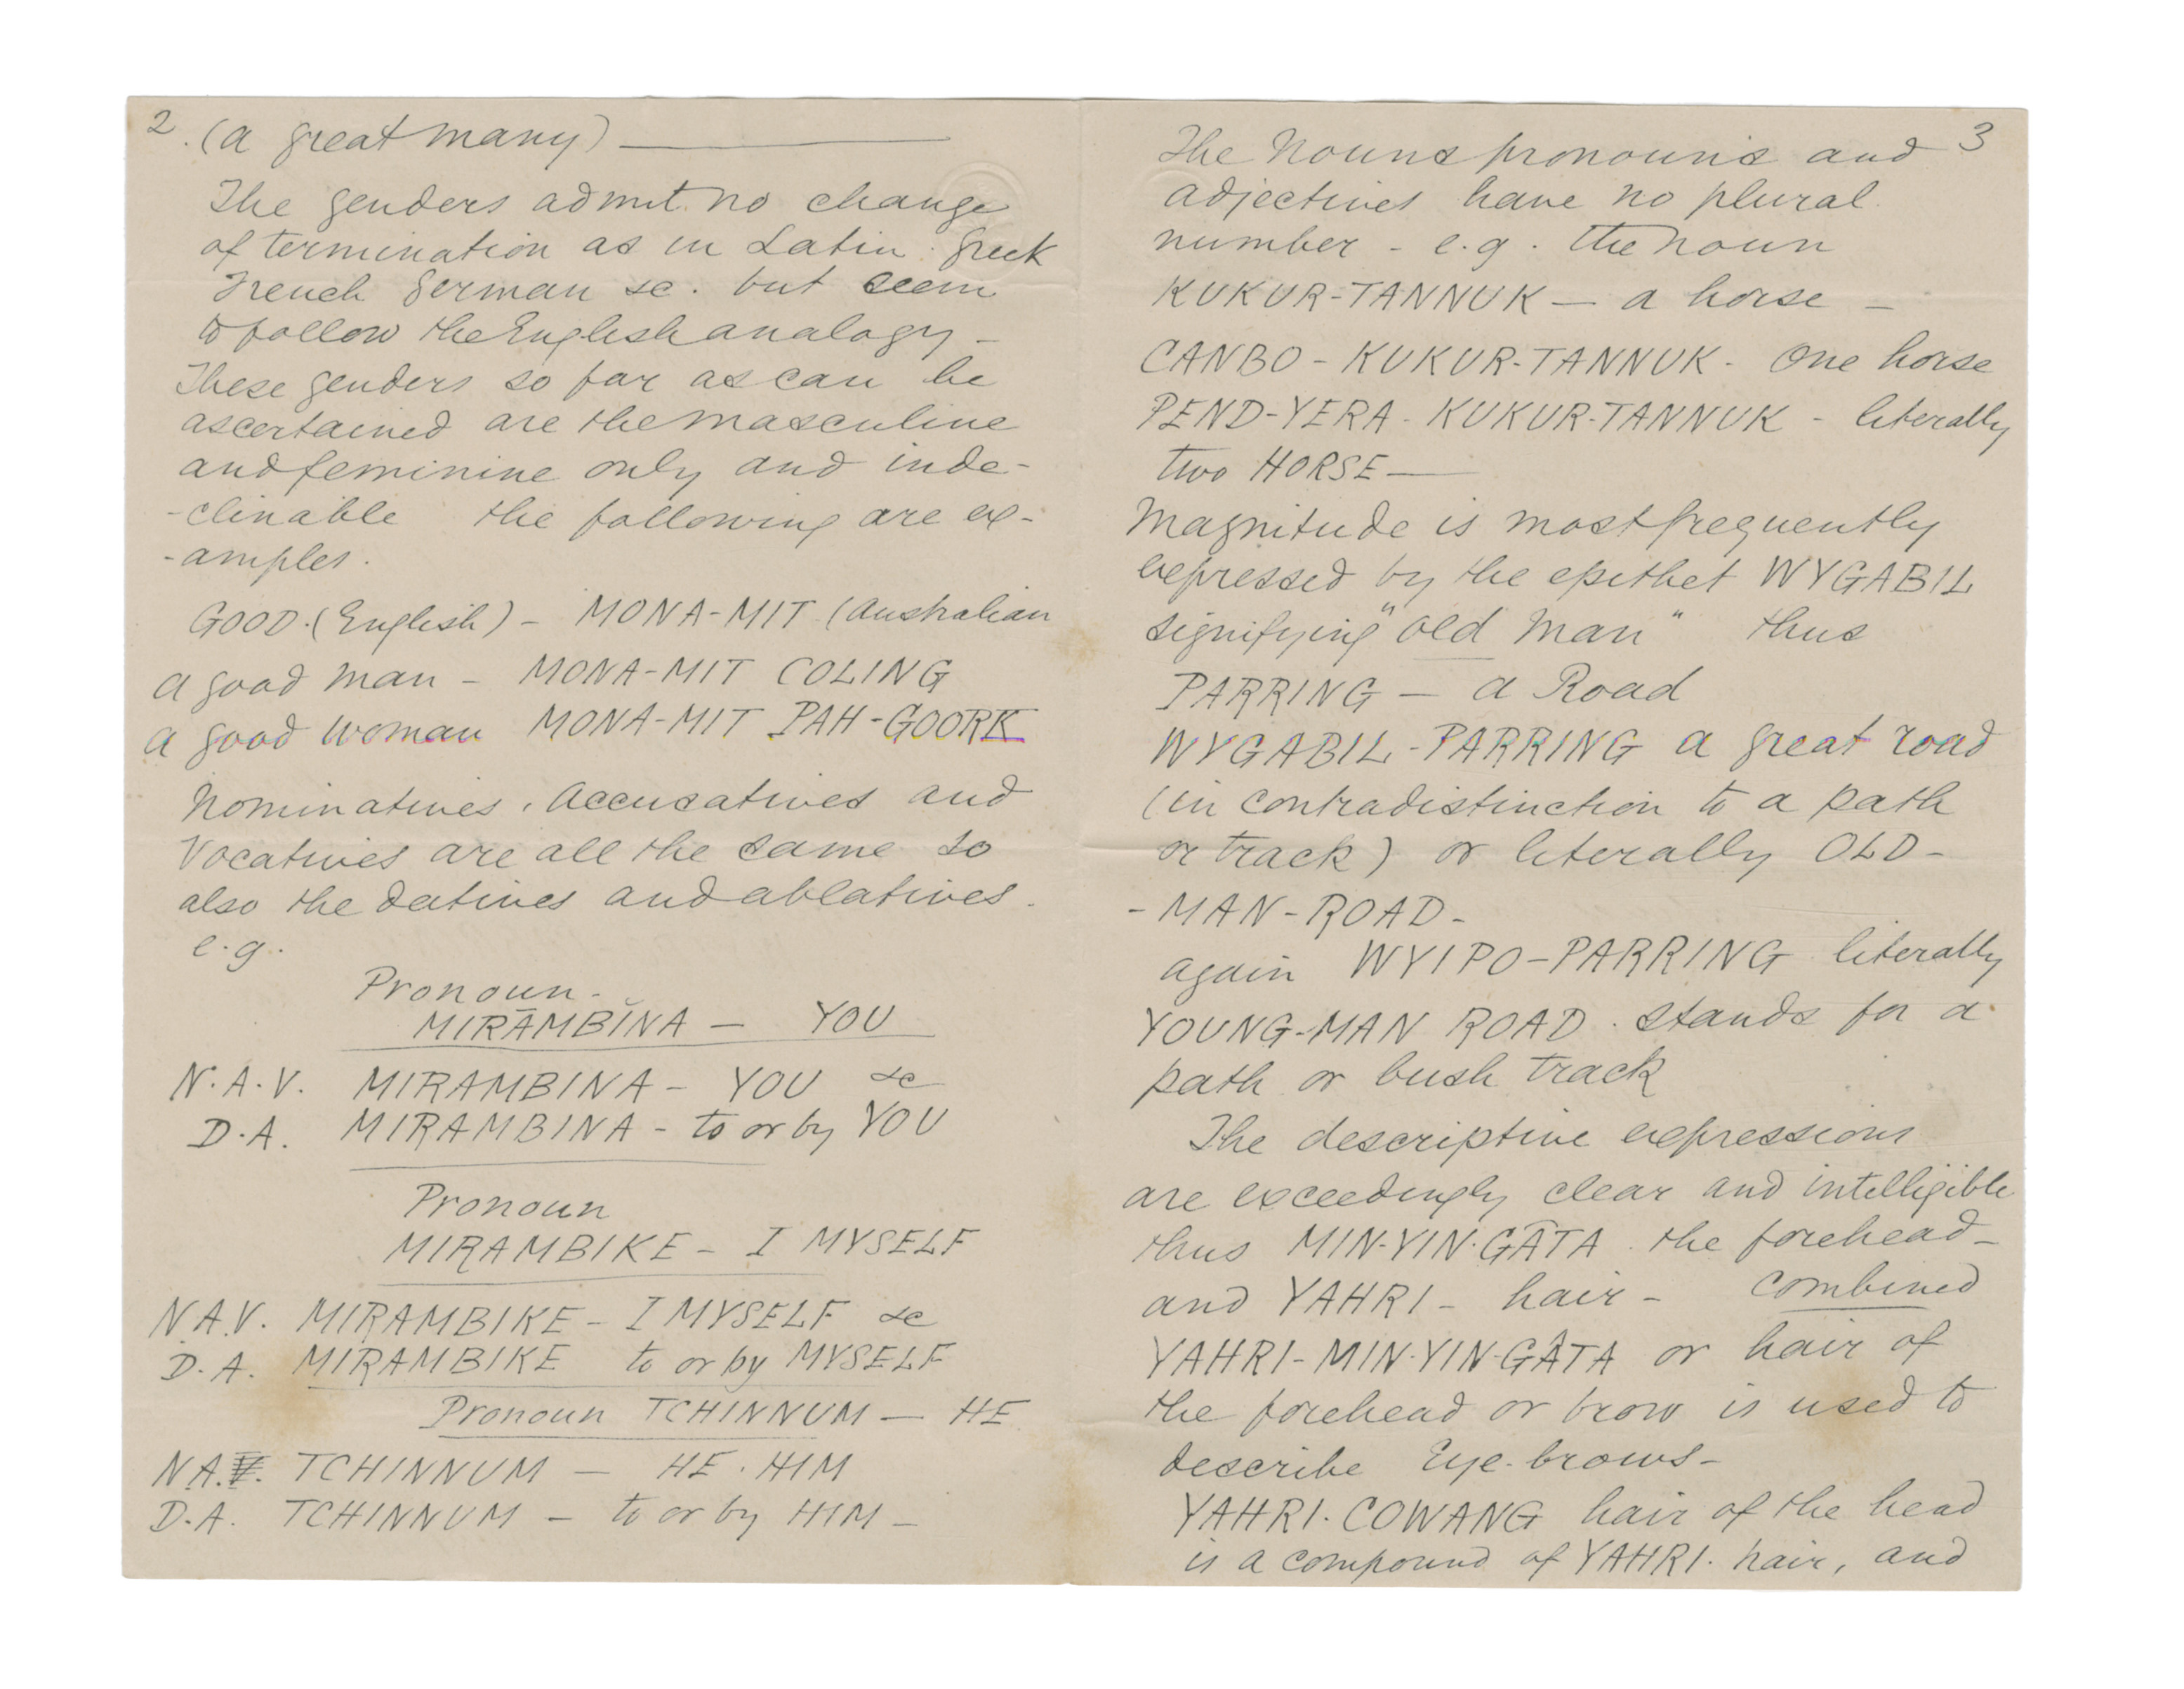 2. (a great many) ———
The genders admit no change
of termination as in Latin. Greek
French German &c. but seem
to follow the English analogy –
These genders so far as can be
ascertained are the masculine
and feminine only and inde-
-clinable the following are ex-
-amples.
GOOD. (English) – MONA-MIT (Australian
a good man – MONA-MIT COLING
a good woman MONA-MIT PAH-GOORK
Nominatives, Accusatives and
Vocatives are all the same so
also the datives and ablatives.
e.g.
Pronoun.
MIRĀMBĬNA – YOU
N.A.V. MIRAMBINA – YOU &c
D.A. MIRAMBINA – to or by YOU
Pronoun
MIRAMBIKE – I MYSELF
N.A.V. MIRAMBIKE – I MYSELF &c
D.A. MIRAMBIKE to or by MYSELF
Pronoun TCHINNUM – HE
N.A.V. TCHINNUM – HE. HIM
D.A. TCHINNUM – to or by HIM –
3
The Nouns pronouns and
adjectives have no plural
number – e.g. the noun
KUKUR-TANNUK – a horse –
CANBO – KUKUR-TANNUK – One horse
PEND-YERA – KUKUR-TANNUK – literally
two HORSE —
Magnitude is most frequently
expressed by the epithet WYGABIL
signifying "old man" thus
PARRING – a Road
WYGABIL-PARRING a great road
(in contradistinction to a path
or track) or literally OLD-
-MAN-ROAD –
again WYIPO-PARRING literally
YOUNG-MAN ROAD. stands for a
path or bush track
The descriptive expressions
are exceedingly clear and intelligible
thus MIN-YIN-GÂTA the forehead –
and YAHRI – hair – combined
YAHRI-MIN-YIN-GÂTA or hair of
the forehead or brow is used to
describe Eye-brows –
YAHRI. COWANG hair of the head
is a compound of YAHRI. hair, and